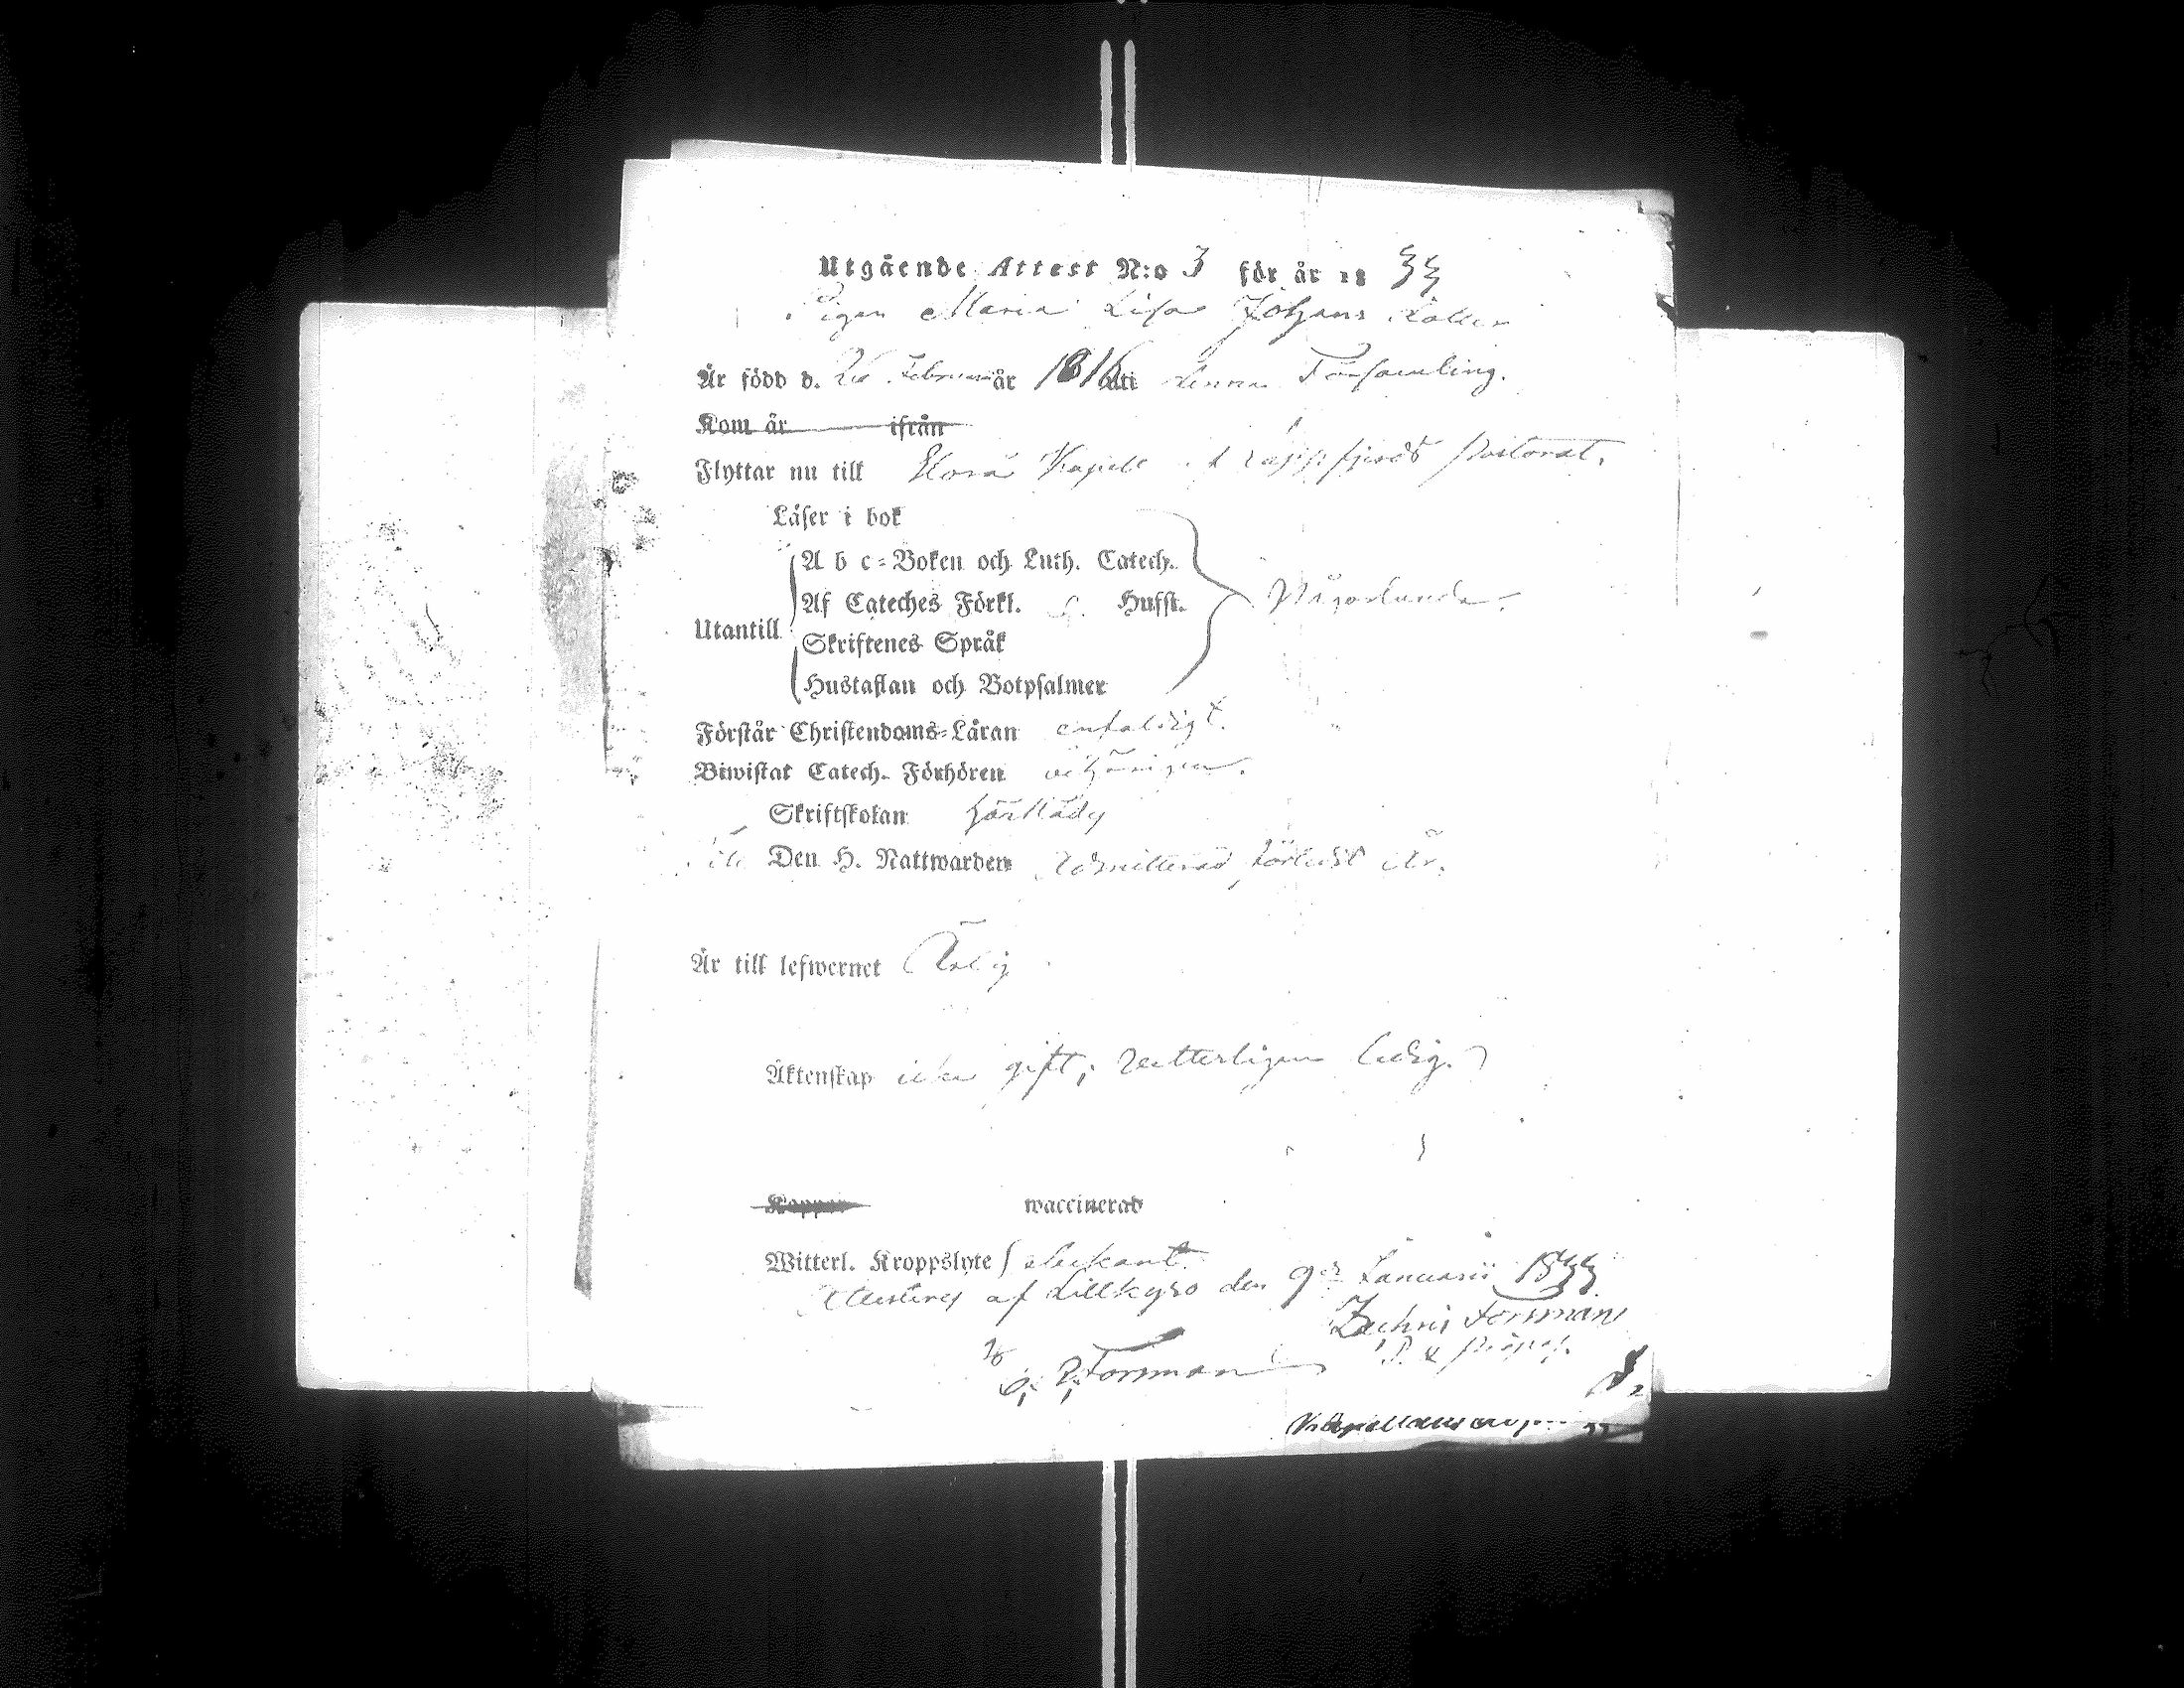 Utgående Attest N:o 3 för år 18 33
Pigan Maria Lisa Johans dotter
År född d. Februari år 1816 uti denna Församling.
Kom år ifrån
Flyttar nu till Kapell af Lappfjerds Pastorat.
Läser i bok
A b c=Boken och Luth. Catech.
Af Cateches Förkl. Husst.
Någorlunda.
Utantill
Skriftenes Språk
Hustaflan och Botpsalmer
Förstår Christendoms=Läran enfaldigt.
Biwistat Catech. Förhören
Skriftskolan
Den H. Nattwarden admitterad förledit år.
År till lefwernet Ärlig
Äktenskap icke gift, ledig.
Koppor waccinerad
Witterl. Kroppslyte obekant.
Attesteras af Lillkyro den 9de Januarii 1833
Zachris Forsman
Forsman